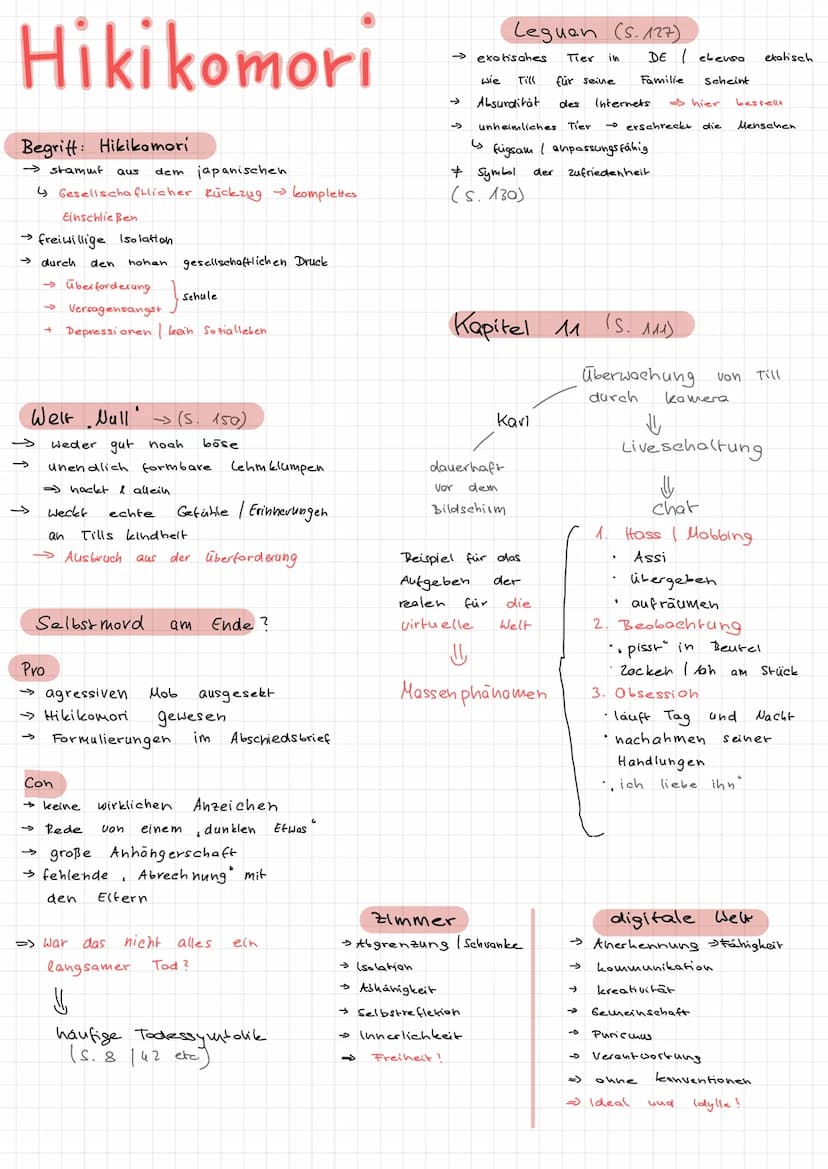 Hikikomori
Begriff: Hikikomori
→ stammt aus dem japanischen
↳ Gesellschaftlicher Rückzug → komplettes
Einschließen
→ freiwillige Isolation
→ durch den hohen gesellschaftlichen Druck
→ Überforderung
→ Versagensangst
} Schule
→ Depressionen | kein Sozialleben
Welt „Null" → (S. 150)
→ weder gut noch böse
→ unendlich formbare Lehmklumpen
⇒ nackt & allein
→ weckt echte Gefühle / Erinnerungen
an Tills Kindheit
→ Ausbruch aus der Überforderung
Selbstmord am Ende?
Pro
→ agressiven Mob ausgesetzt
→ Hikikomori gewesen
→ Formulierungen im Abschiedsbrief
Con
→ keine wirklichen Anzeichen
→ Rede von einem „dunklen Etwas"
→ große Anhängerschaft
→ fehlende „Abrechnung" mit
den Eltern
⇒ War das nicht alles ein
langsamer Tod?
⇓
häufige Todessymbolik
(S. 8 | 42 etc)
Leguan (S. 127)
→ exotisches Tier in DE | ebenso exotisch
wie Till für seine Familie scheint
→ Absurdität des Internets ⇒ hier bestellt
→ unheimliches Tier → erschreckt die Menschen
↳ fügsam | anpassungsfähig
≠ Symbol der Zufriedenheit
(S. 130)
Kapitel 11 (S. 111)
Überwachung von Till
durch Kamera
Karl
dauerhaft
vor dem
Bildschirm
Beispiel für das
Aufgeben der
realen für die
virtuelle Welt
⇓
Massenphänomen
⇓
Liveschaltung
⇓
Chat
1. Hass | Mobbing
· Assi
· übergeben
· aufräumen
2. Beobachtung
· „pisst" in Beutel
· Zocken | 10h am Stück
3. Obsession
· läuft Tag und Nacht
· nachahmen seiner
Handlungen
· „ich liebe ihn"
Zimmer
→ Abgrenzung | Schranke
→ Isolation
→ Abhänigkeit
→ Selbstreflektion
→ Innerlichkeit
⇒ Freiheit!
digitale Welt
→ Anerkennung → Fähigkeit
→ Kommunikation
→ Kreativität
→ Gemeinschaft
→ Purismus
→ Verantwortung
⇒ ohne Konventionen
⇒ Ideal und Idylle!